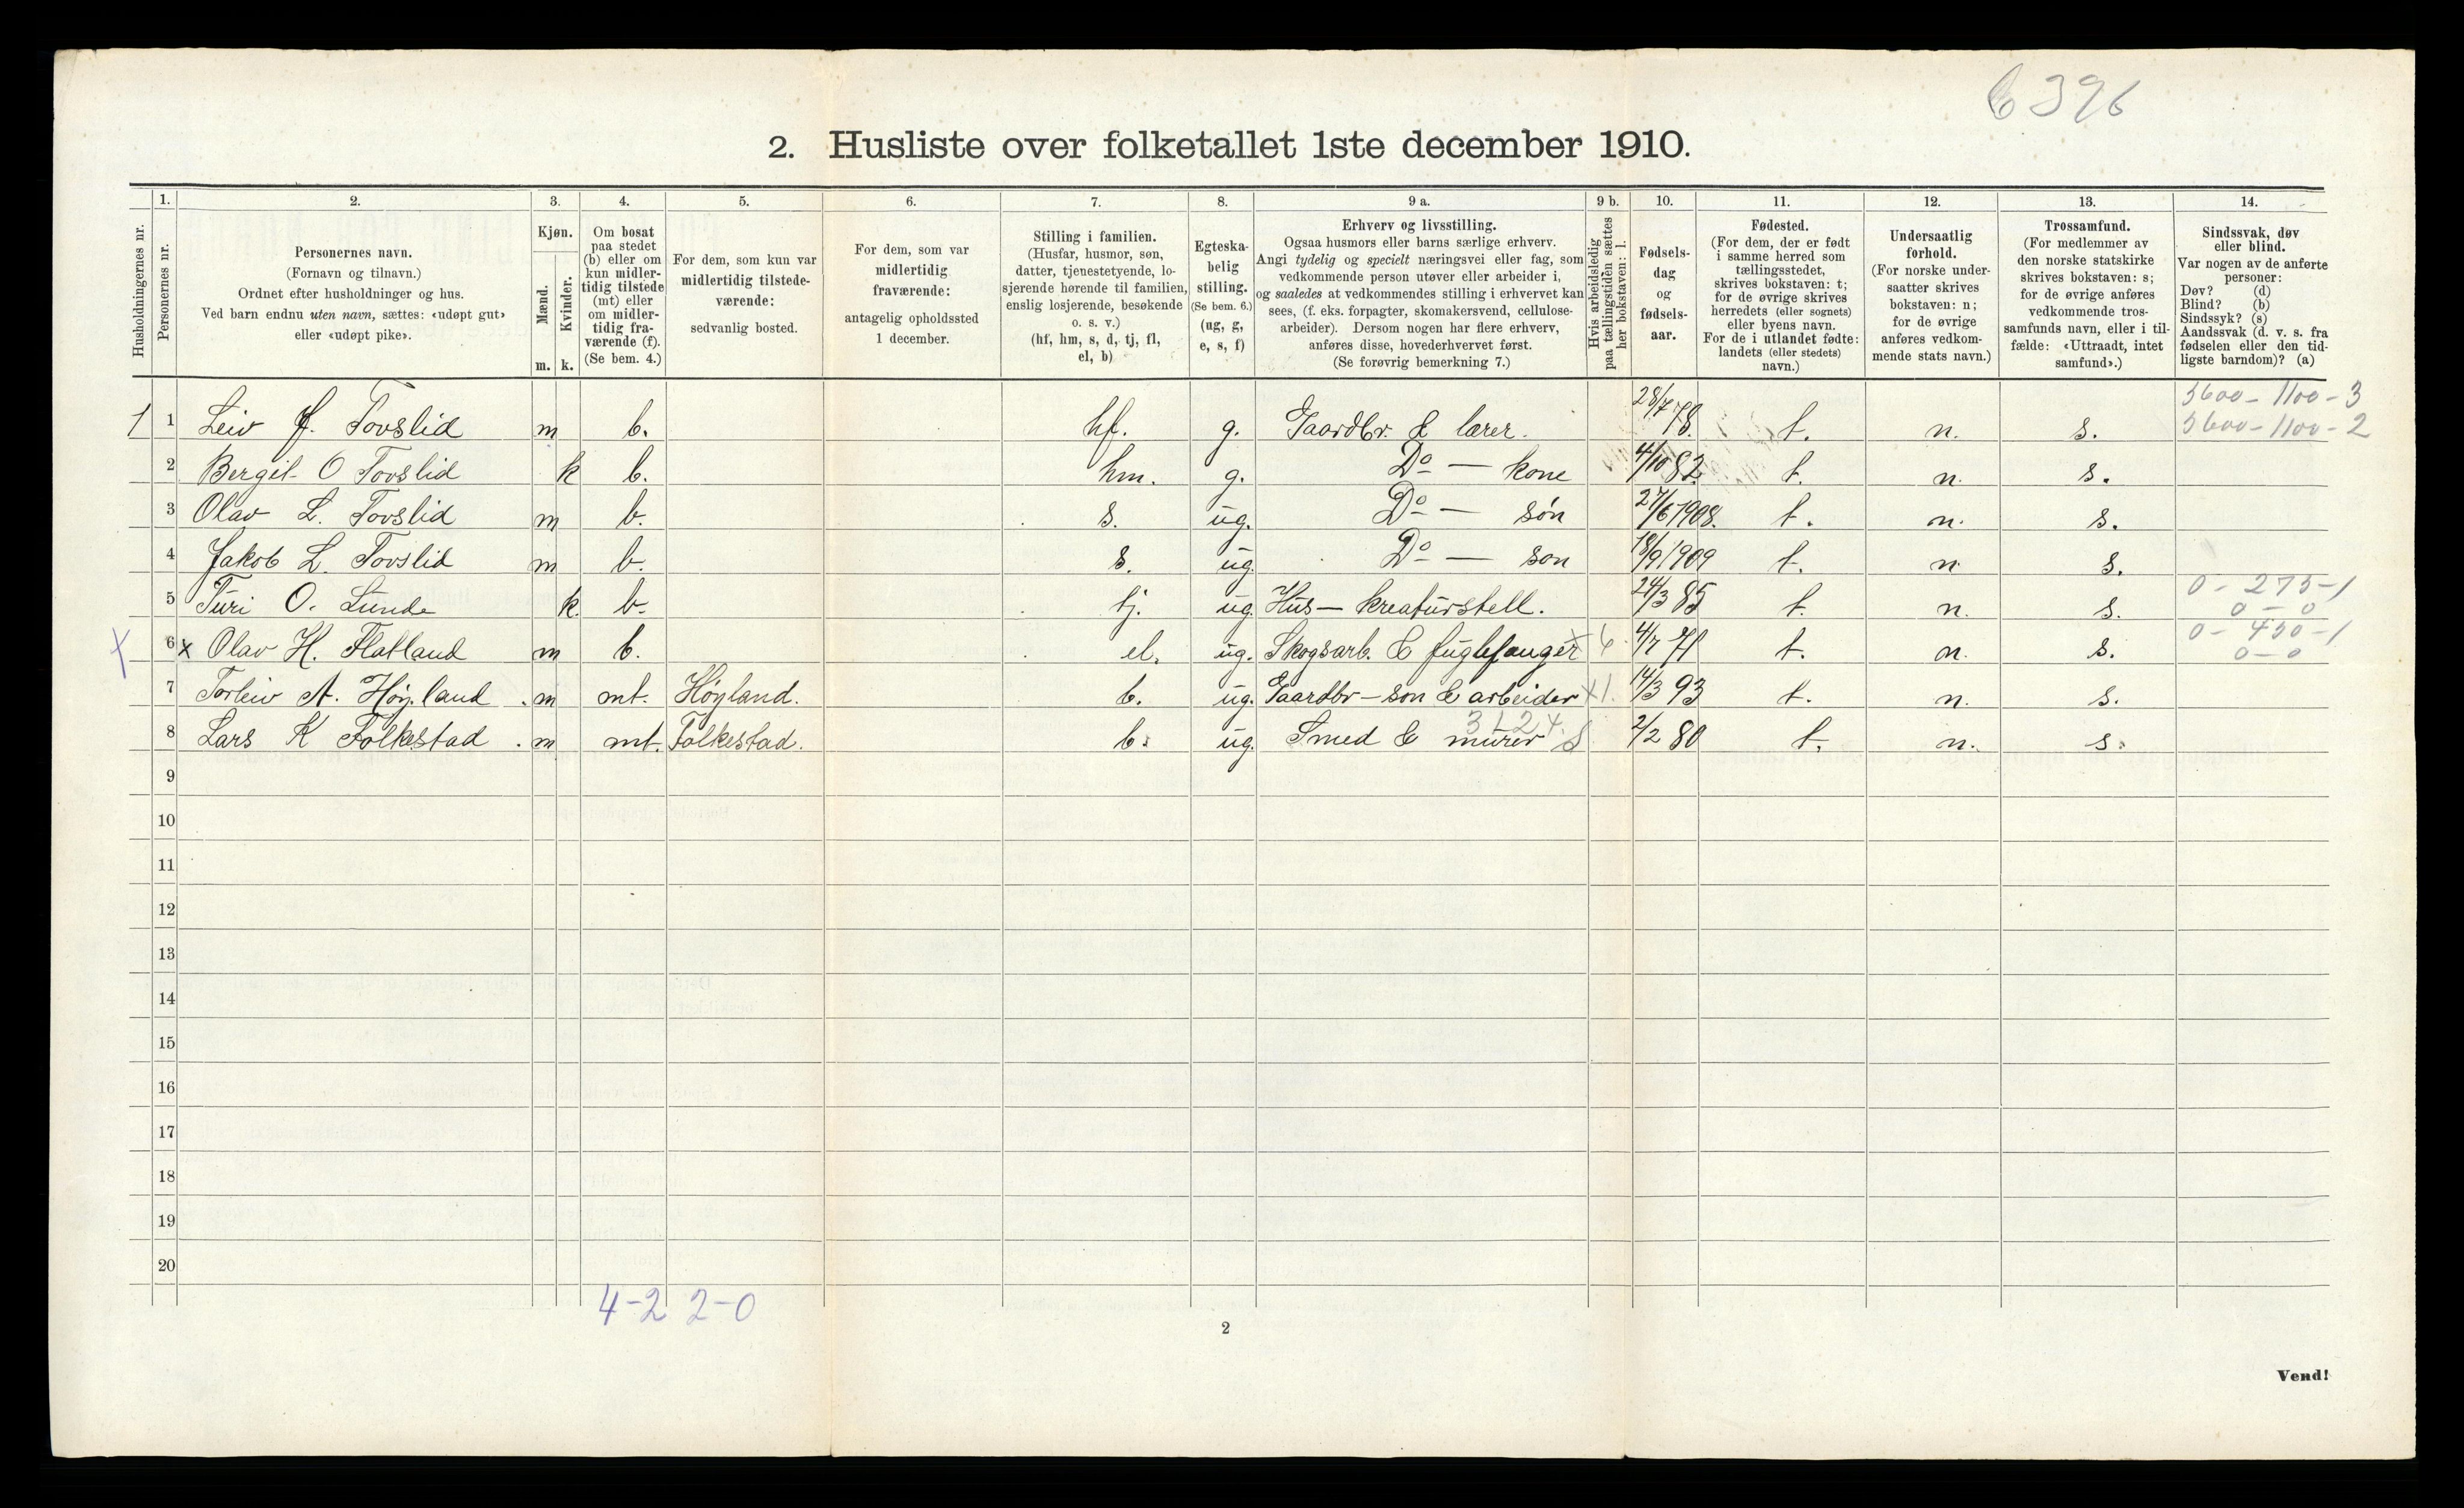 6396
2. Husliste over folketallet 1ste december 1910.
Husholdningernes nr.
1.
Personernes nr.
2.
Personernes navn.
(Fornavn og tilnavn.)
Ordnet efter husholdninger og hus.
Ved barn endnu uten navn, sættes: «udøpt gut»
eller «udøpt pike».
3.
Kjøn.
Mænd.
Kvinder.
m. k.
4.
Om bosat
paa stedet
(b) eller om
kun midler-
tidig tilstede
(mt) eller
om midler-
tidig fra-
værende (f).
(Se bem. 4.)
5.
For dem, som kun var
midlertidig tilstede-
værende:
sedvanlig bosted.
6.
For dem, som var
midlertidig
fraværende:
antagelig opholdssted
1 december.
7.
Stilling i familien.
(Husfar, husmor, søn,
datter, tjenestetyende, lo-
sjerende hørende til familien,
enslig losjerende, besøkende
o. s. v.)
(hf, hm, s, d, tj, fl,
el, b)
8.
Egteska-
belig
stilling.
(Se bem. 6.)
(ug, g,
e, s, f)
9 a.
Erhverv og livsstilling.
Ogsaa husmors eller barns særlige erhverv.
Angi tydelig og specielt næringsvei eller fag, som
vedkommende person utøver eller arbeider i,
og saaledes at vedkommendes stilling i erhvervet kan
sees, (f. eks. forpagter, skomakersvend, cellulose-
arbeider). Dersom nogen har flere erhverv,
anføres disse, hovederhvervet først.
(Se forøvrig bemerkning 7.)
9 b.
Hvis arbeidsledig
paa tællingstiden sættes
her bokstaven: l.
10.
Fødsels-
dag
og
fødsels-
aar.
11.
Fødested.
(For dem, der er født
i samme herred som
tællingsstedet,
skrives bokstaven: t;
for de øvrige skrives
herredets (eller sognets)
eller byens navn.
For de i utlandet fødte:
landets (eller stedets)
navn.)
12.
Undersaatlig
forhold.
(For norske under-
saatter skrives
bokstaven: n;
for de øvrige
anføres vedkom-
mende stats navn.)
13.
Trossamfund.
(For medlemmer av
den norske statskirke
skrives bokstaven: s;
for de øvrige anføres
vedkommende tros-
samfunds navn, eller i til-
fælde: «Uttraadt, intet
samfund».)
14.
Sindssvak, døv
eller blind.
Var nogen av de anførte
personer:
Døv? (d)
Blind? (b)
Sindssyk? (s)
Aandssvak (d. v. s. fra
fødselen eller den tid-
ligste barndom)? (a)
1 1 Leiv J. Tovslid m b. hf. g. Gaardbr. & lærer. 28/7 78. t. n. s. 3600 - 1100 - 3
3600 - 1100 - 2
2 Bergit O Tovslid k b. hm. g. Do — kone 4/10 82. t. n. s.
3 Olav L. Tovslid m b. s. ug. Do — søn 27/6 1908. t. n. s.
4 Jakob L. Tovslid m b. s. ug. Do — søn 18/9 1909 t. n s.
5 Turi O. Lunde k. b. tj. ug. Hus— kreaturstell. 24/3 85 t. n. s. 0 - 275 - 1
0 - 0
X 6 x Olav H. Flatland m b. el. ug. Skogsarb. & fuglefanger x 6 4/7 71 t. n. s. 0 - 450 - 1
0 - 0
7 Torleiv A. Høyland . m mt. Høyland. b. ug. Gaardbr — søn & arbeider x 1. 14/3 93 t. n. s.
8 Lars K Folkestad . m mt. Folkestad. b. ug. Smed & murer 3124. S 2/2 80 t. n. s.
9
10
11
12
13
14
15
16
17
18
19
20
4-2 2-0
2
Vend!